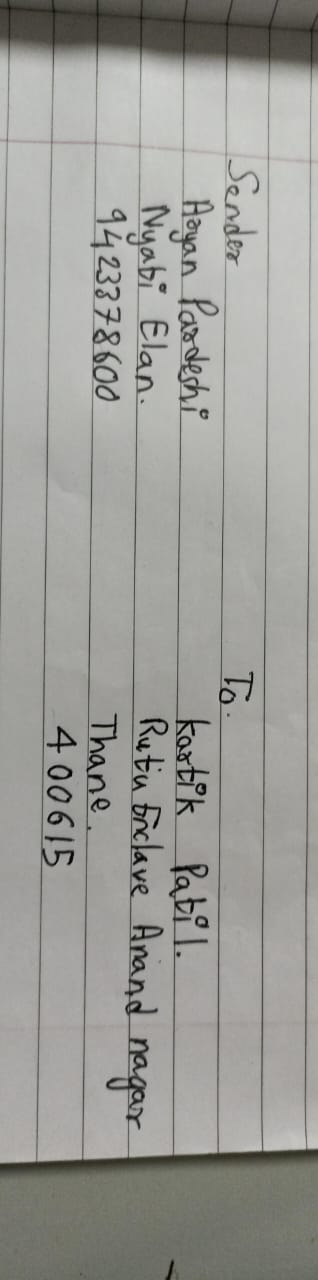 Sender
Aryan Pardeshi
Nyati Elan.
9423378600
To.
Kartik Patil.
Rutu Enclave Anand nagar
Thane.
400615